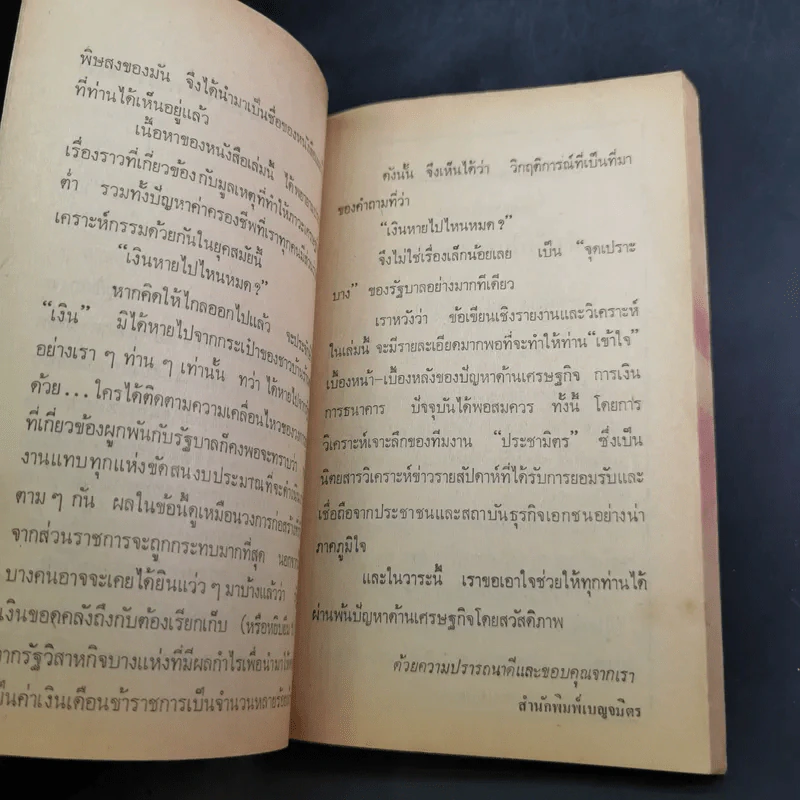 พิษสงของมัน จึงได้นำมาเป็นชื่อของหนังสือ
ที่ท่านได้เห็นอยู่แล้ว
เนื้อหาของหนังสือเล่มนี้ ได้พยายาม
เรื่องราวที่เกี่ยวข้องกับมูลเหตุที่ทำให้ภาวะเศรษฐกิจ
ต่ำ รวมทั้งปัญหาค่าครองชีพที่เราทุกคนมีส่วน
เคราะห์กรรมด้วยกันในยุคสมัยนี้
“เงินหายไปไหนหมด?”
หากคิดให้ไกลออกไปแล้ว
“เงิน” มิได้หายไปจากกระเป๋าของชาวบ้าน
อย่างเรา ๆ ท่าน ๆ เท่านั้น ทว่า ได้หายไปจาก
ด้วย...ใครได้ติดตามความเคลื่อนไหวของวงการ
ที่เกี่ยวข้องผูกพันกับรัฐบาลก็คงพอจะทราบว่า
งานแทบทุกแห่งขัดสนงบประมาณที่จะดำเนิน
ตาม ๆ กัน ผลในข้อนี้ดูเหมือนวงการก่อสร้าง
จากส่วนราชการจะถูกกระทบมากที่สุด นอกจาก
บางคนอาจจะเคยได้ยินแว่ว ๆ มาบ้างแล้วว่า
เงินขอดคลังถึงกับต้องเรียกเก็บ (หรือหยิบยืม
จากรัฐวิสาหกิจบางแห่งที่มีผลกำไรเพื่อนำมา
เป็นค่าเงินเดือนข้าราชการเป็นจำนวนหลายร้อย
ดังนั้น จึงเห็นได้ว่า วิกฤติการณ์ที่เป็นที่มา
ของคำถามที่ว่า
“เงินหายไปไหนหมด?”
จึงไม่ใช่เรื่องเล็กน้อยเลย เป็น “จุดเปราะ
บาง” ของรัฐบาลอย่างมากทีเดียว
เราหวังว่า ข้อเขียนเชิงรายงานและวิเคราะห์
ในเล่มนี้ จะมีรายละเอียดมากพอที่จะทำให้ท่าน“เข้าใจ”
เบื้องหน้า-เบื้องหลังของปัญหาด้านเศรษฐกิจ การเงิน
การธนาคาร ปัจจุบันได้พอสมควร ทั้งนี้ โดยการ
วิเคราะห์เจาะลึกของทีมงาน “ประชามิตร” ซึ่งเป็น
นิตยสารวิเคราะห์ข่าวรายสัปดาห์ที่ได้รับการยอมรับและ
เชื่อถือจากประชาชนและสถาบันธุรกิจเอกชนอย่างน่า
ภาคภูมิใจ
และในวาระนี้ เราขอเอาใจช่วยให้ทุกท่านได้
ผ่านพ้นปัญหาด้านเศรษฐกิจโดยสวัสดิภาพ
ด้วยความปรารถนาดีและขอบคุณจากเรา
สำนักพิมพ์เบญจมิตร